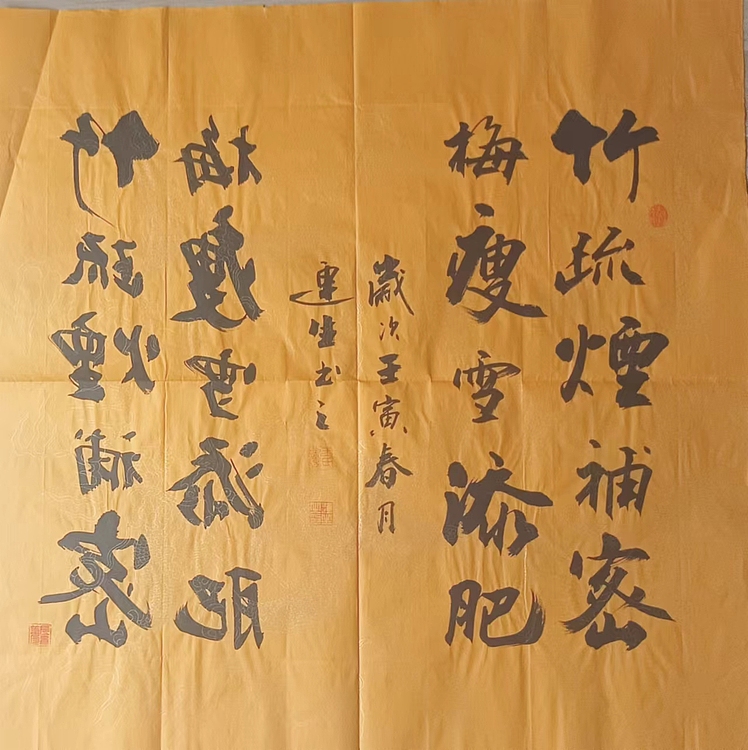 竹疏煙補密
梅瘦雪添肥
歲次壬寅春月
书之
梅瘦雪添肥
竹疏煙補密